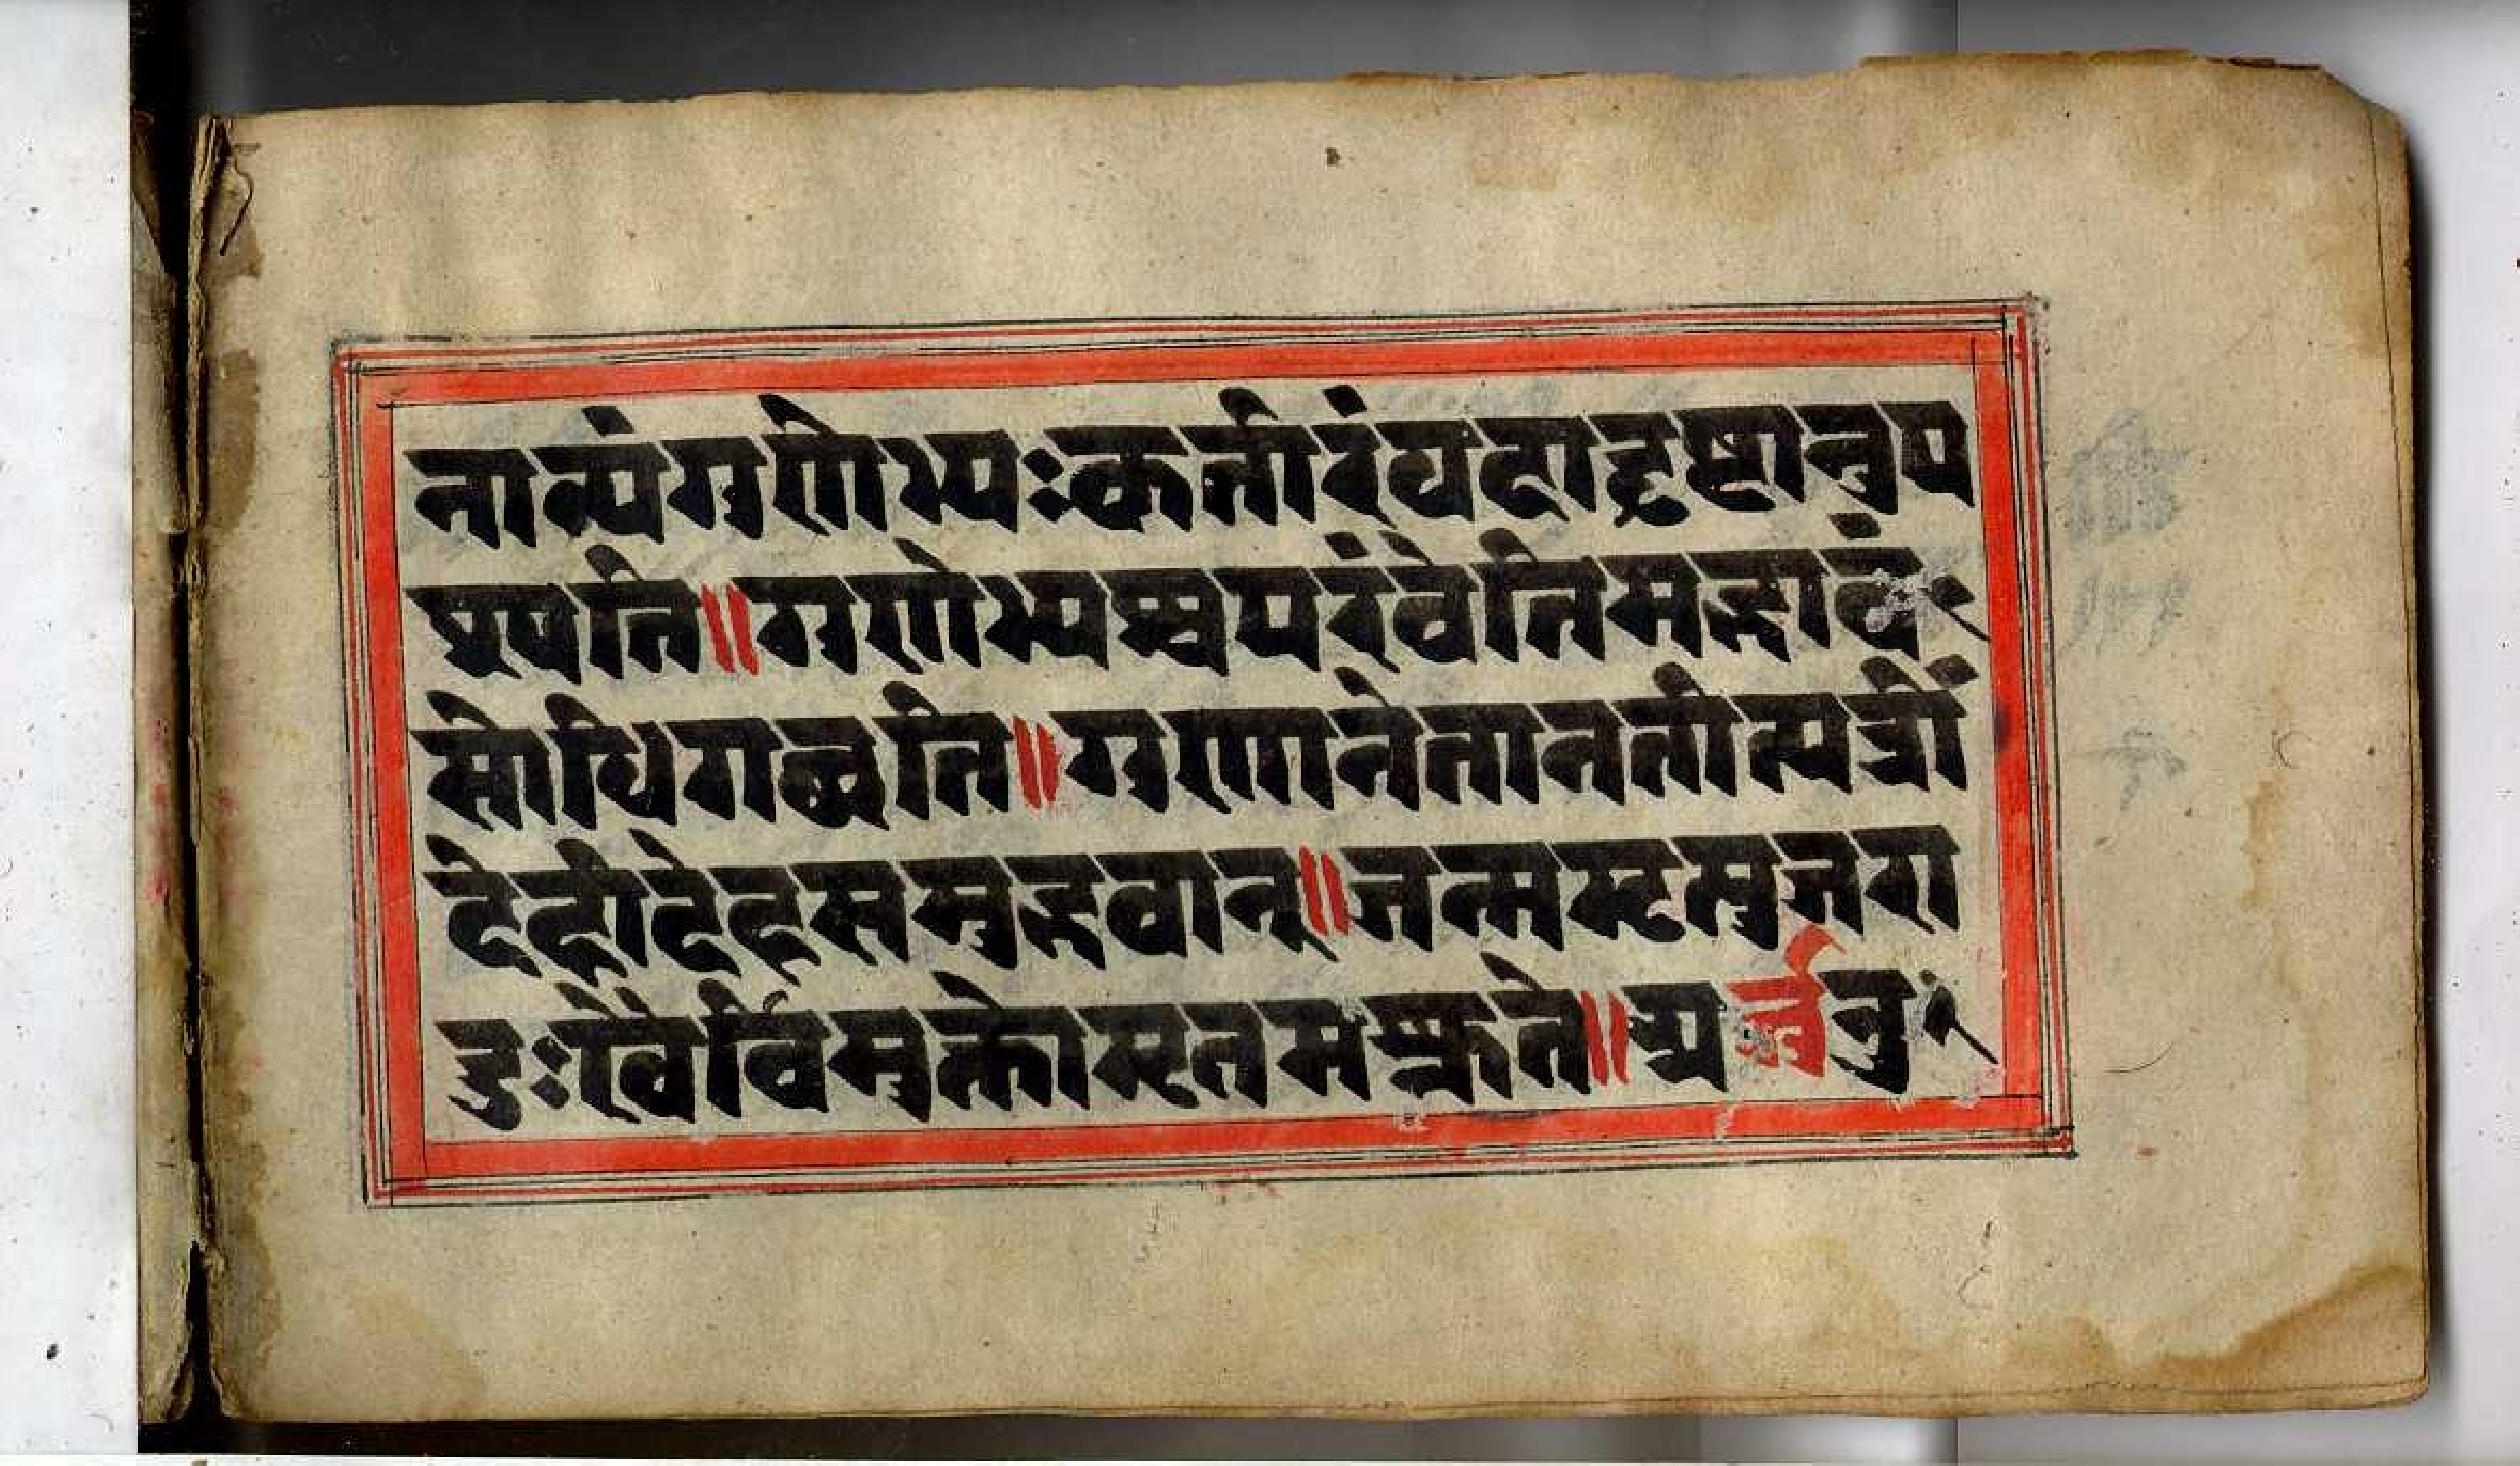 नान्यंगुणेभ्यःकर्त्तारंयदाद्रष्टानुप
श्यति॥गुणेभ्यश्चपरंवेत्तिमद्भावं
सोधिगछति॥गुणानेतानतीत्यत्रीं
देहीदेहसमुद्भवान्॥जन्ममृत्युजरा
दुःखैर्विमुक्तोमृतमश्नुते॥अर्जुनउ